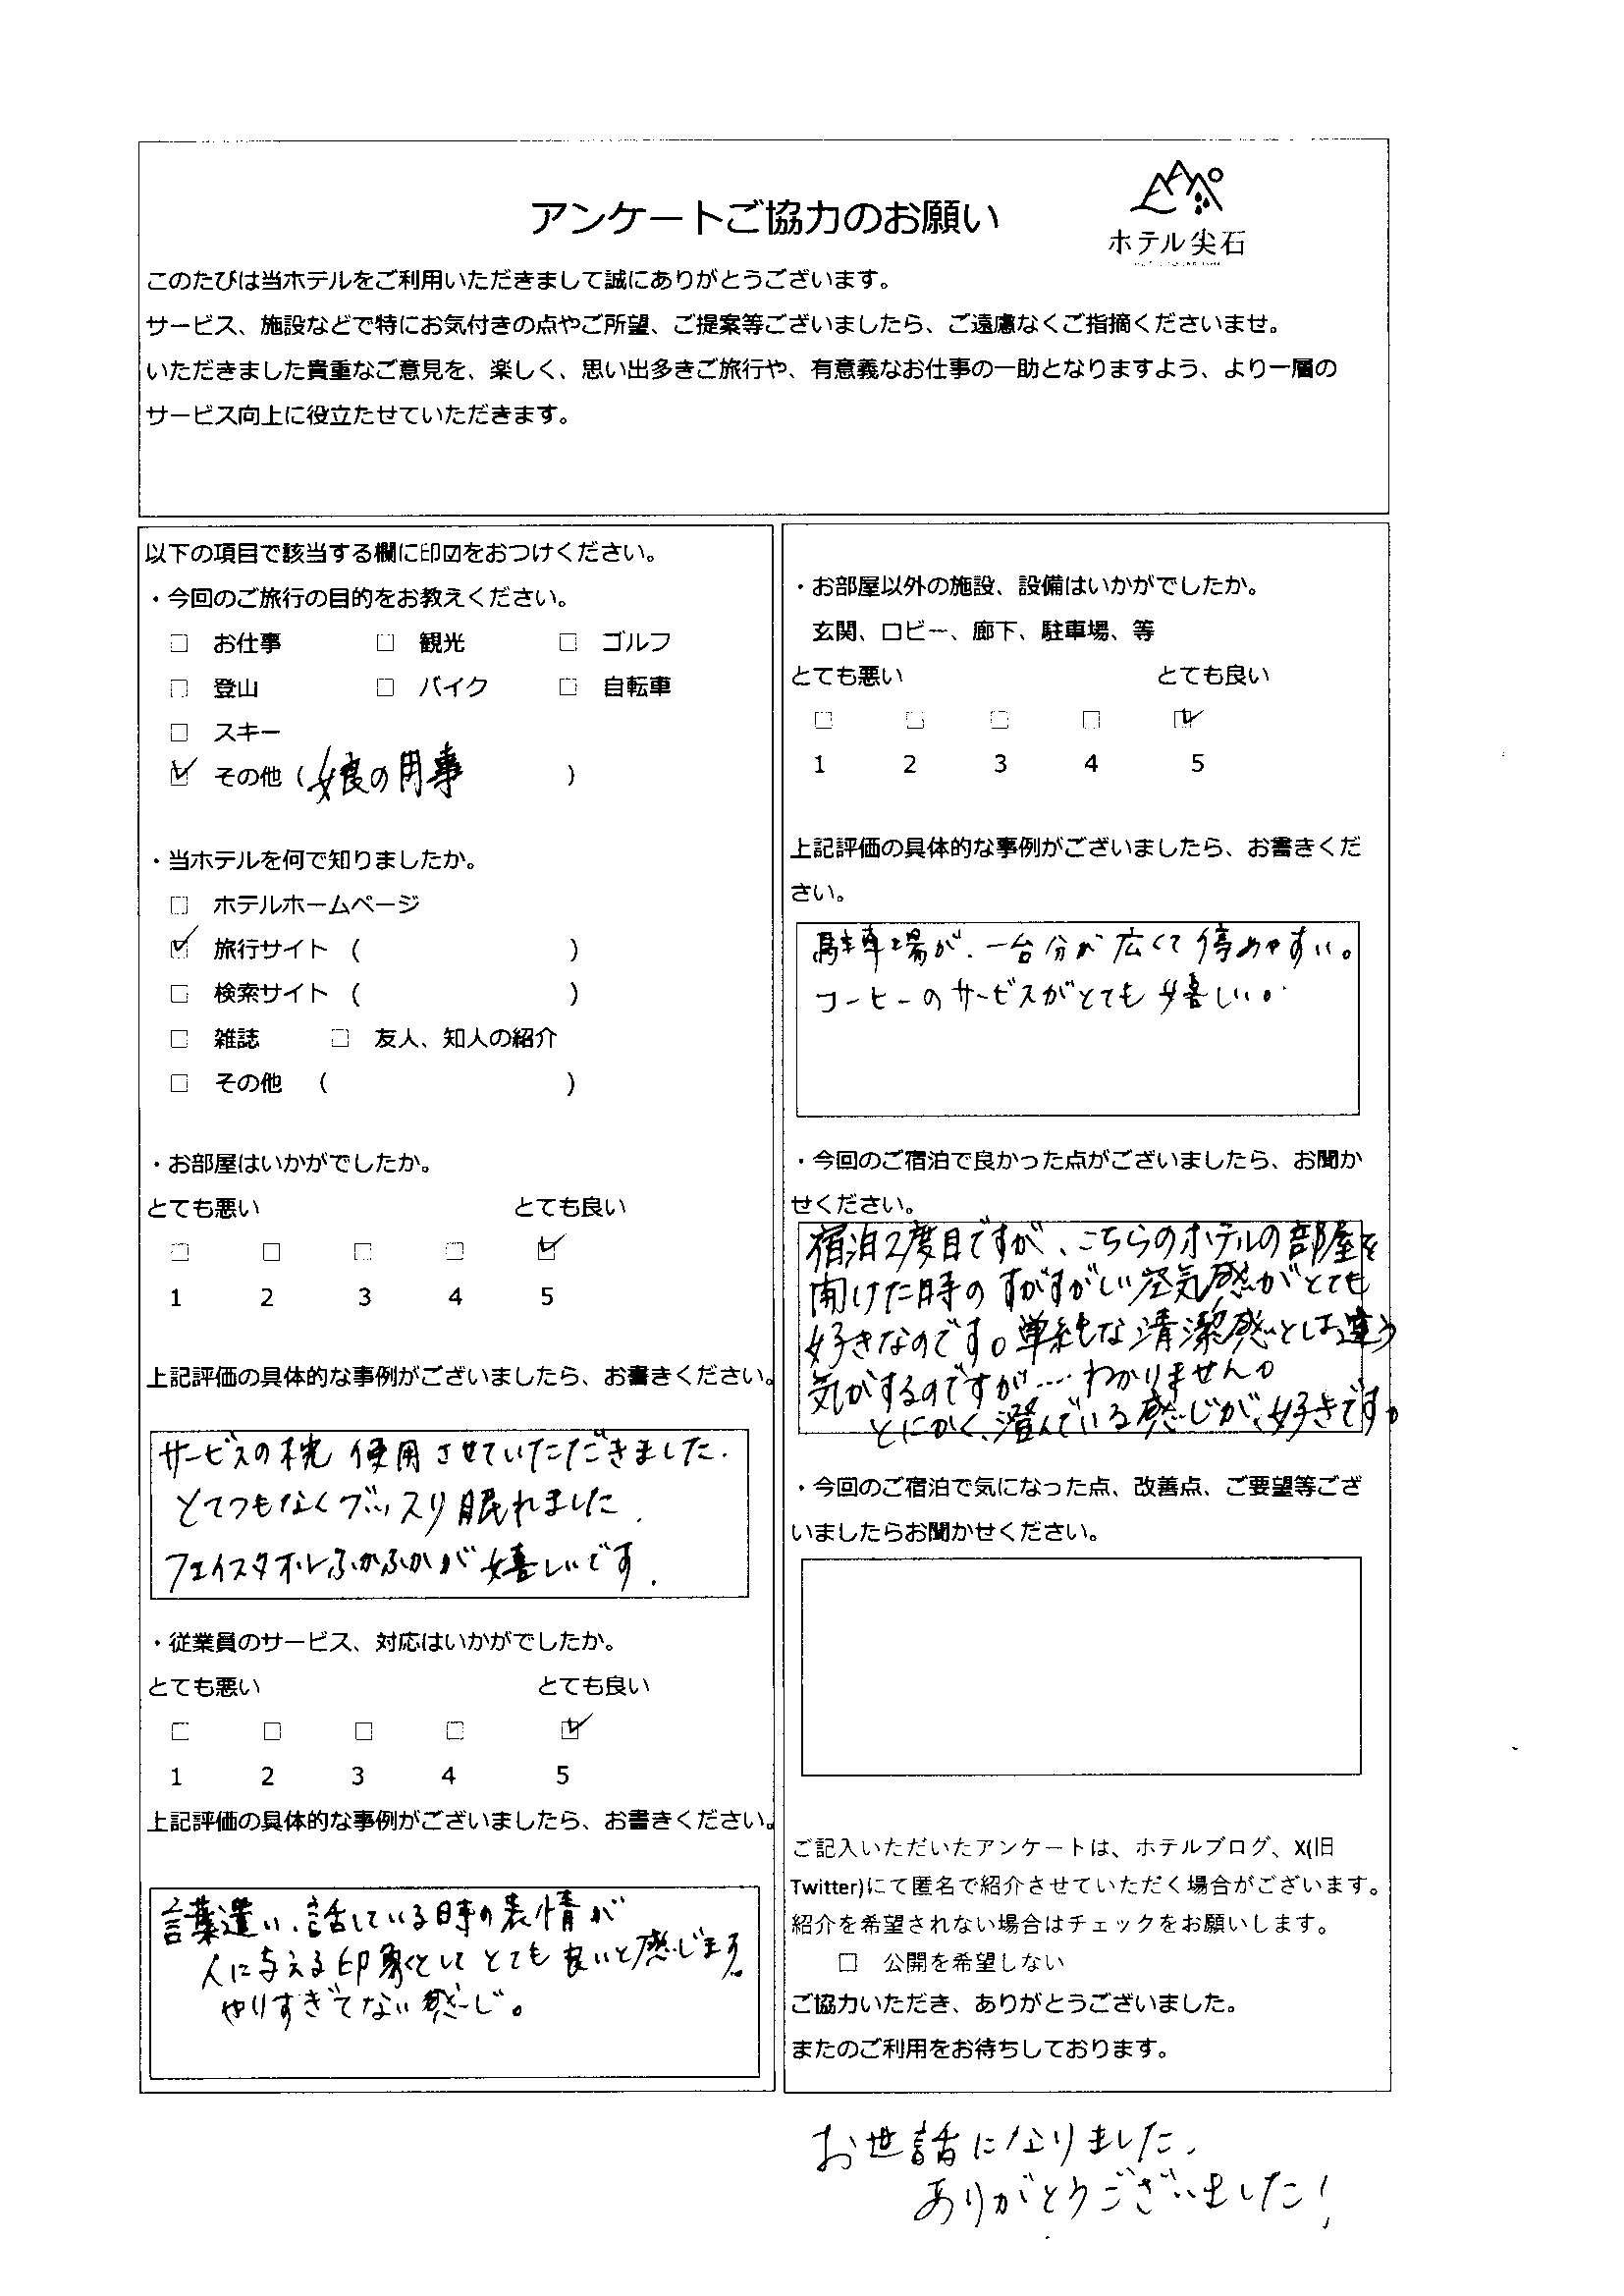 アンケートご協力のお願い
ホテル尖石
このたびは当ホテルをご利用いただきまして誠にありがとうございます。
サービス、施設などで特にお気付きの点やご所望、ご提案等ございましたら、ご遠慮なくご指摘くださいませ。
いただきました貴重なご意見を、楽しく、思い出多きご旅行や、有意義なお仕事の一助となりますよう、より一層の
サービス向上に役立たせていただきます。
以下の項目で該当する欄に印☑をおつけください。
・今回のご旅行の目的をお教えください。
□ お仕事 □ 観光 □ ゴルフ
□ 登山 □ バイク □ 自転車
□ スキー
☑ その他 ( 娘の用事 )
・当ホテルを何で知りましたか。
□ ホテルホームページ
☑ 旅行サイト ( )
□ 検索サイト ( )
□ 雑誌 □ 友人、知人の紹介
□ その他 ( )
・お部屋はいかがでしたか。
とても悪い とても良い
□ □ □ □ ☑
1 2 3 4 5
上記評価の具体的な事例がございましたら、お書きください。
サービスの枕 使用させていただきました.
とてつもなくグッスリ眠れました.
フェイスタオルふかふかが嬉しいです.
・従業員のサービス、対応はいかがでしたか。
とても悪い とても良い
□ □ □ □ ☑
1 2 3 4 5
上記評価の具体的な事例がございましたら、お書きください。
言葉遣い、話している時の表情が
人に与える印象としてとても良いと感じます。
やりすぎてない感じ。
・お部屋以外の施設、設備はいかがでしたか。
玄関、ロビー、廊下、駐車場、等
とても悪い とても良い
□ □ □ □ ☑
1 2 3 4 5
上記評価の具体的な事例がございましたら、お書きくだ
さい。
駐車場が、一台分が広くて停めやすい。
コーヒーのサービスがとても嬉しい。
・今回のご宿泊で良かった点がございましたら、お聞か
せください。
宿泊2度目ですが、こちらのホテルの部屋を
開けた時のすがすがしい空気感がとても
好きなのです。単純な清潔感とは違う
気がするのですが....わかりません。
とにかく、澄んでいる感じが、好きです。
・今回のご宿泊で気になった点、改善点、ご要望等ござ
いましたらお聞かせください。
ご記入いただいたアンケートは、ホテルブログ、X(旧
Twitter)にて匿名で紹介させていただく場合がございます。
紹介を希望されない場合はチェックをお願いします。
□ 公開を希望しない
ご協力いただき、ありがとうございました。
またのご利用をお待ちしております。
お世話になりました.
ありがとうございました!